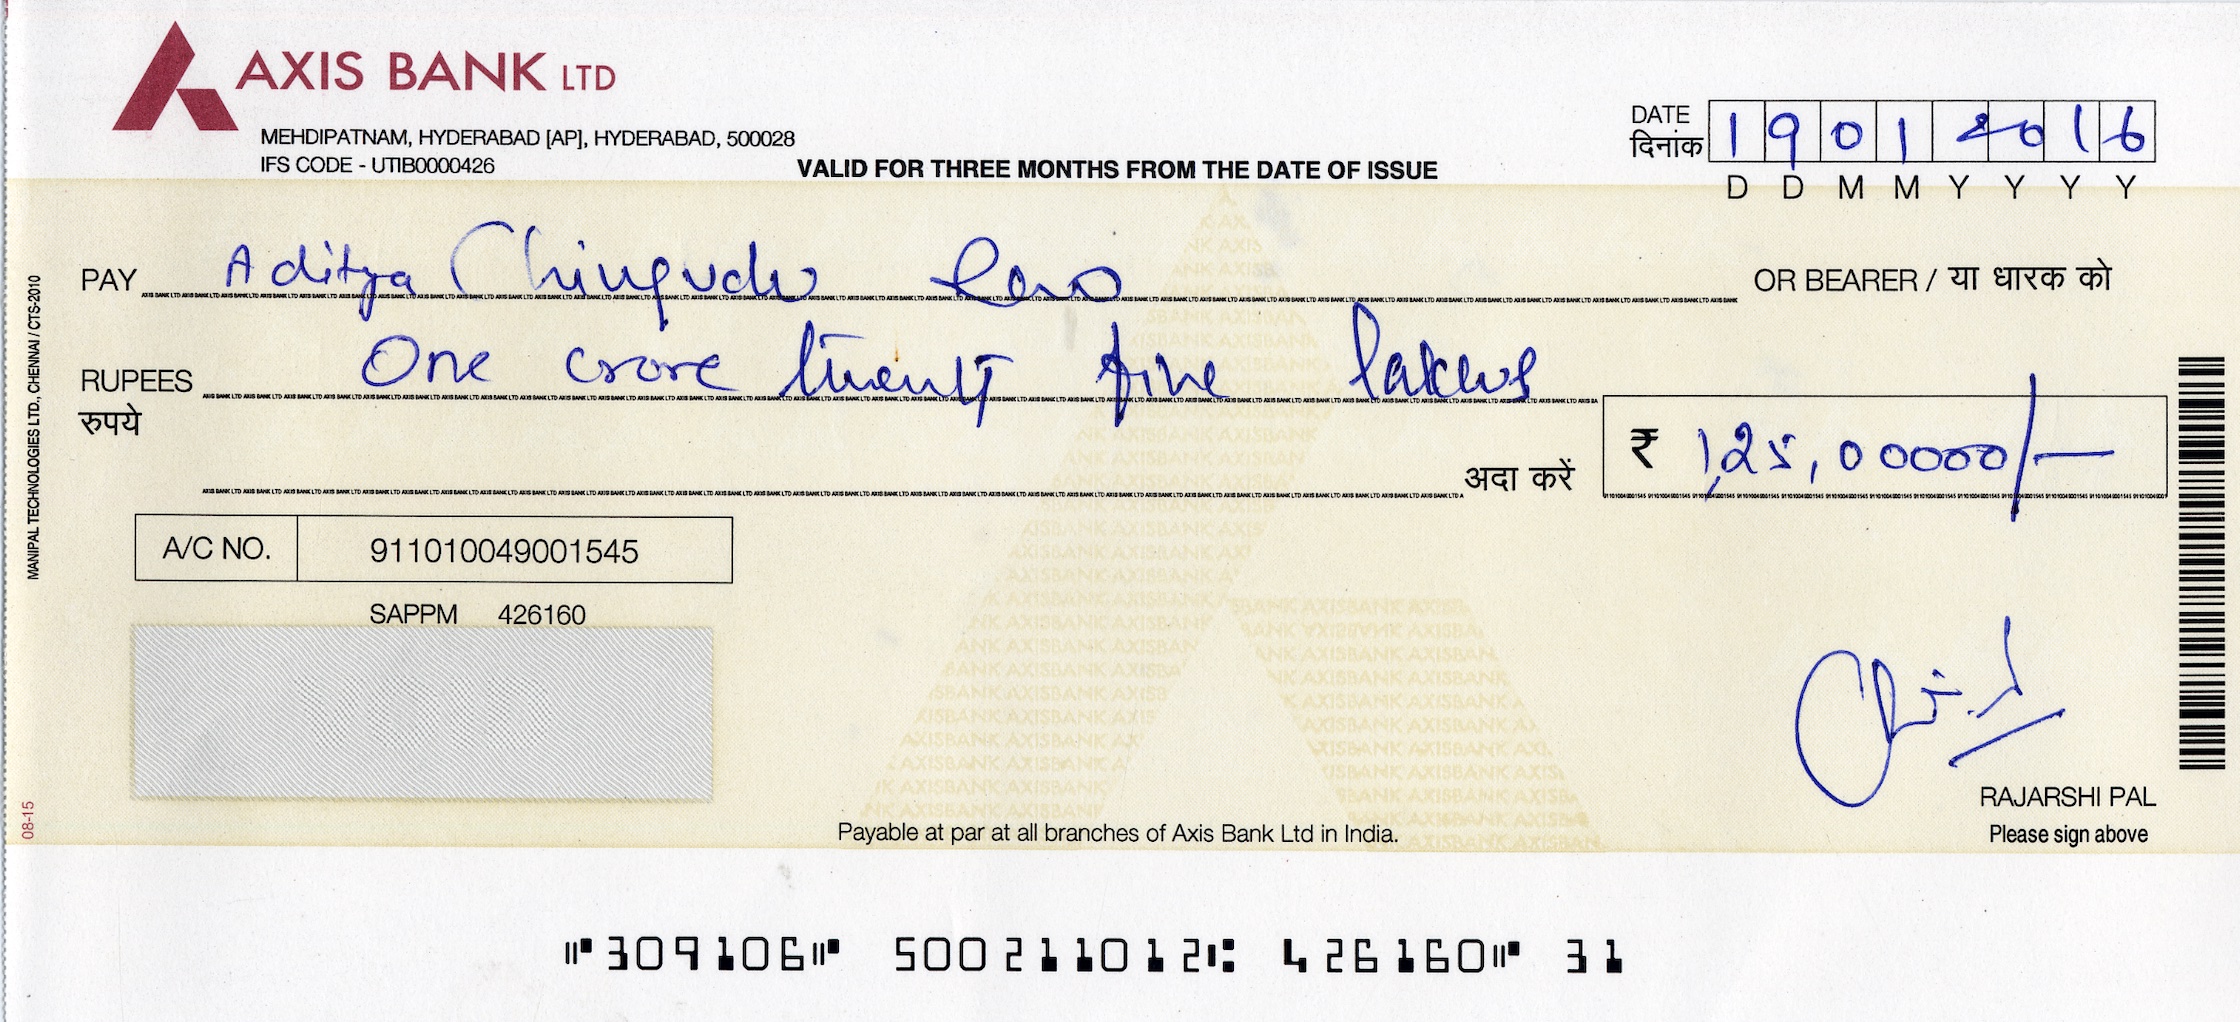 AXIS BANK LTD
MEHDIPATNAM, HYDERABAD [AP], HYDERABAD, 500028
IFS CODE - UTIB0000426
VALID FOR THREE MONTHS FROM THE DATE OF ISSUE
DATE
दिनांक
1 9 0 1 2 0 1 6
D D M M Y Y Y Y
PAY Aditya OR BEARER / या धारक को
RUPEES One crore twenty five lakhs
रुपये
अदा करें ₹ 1,25,00000/-
A/C NO. 911010049001545
SAPPM 426160
RAJARSHI PAL
Please sign above
Payable at par at all branches of Axis Bank Ltd in India.
MANIPAL TECHNOLOGIES LTD., CHENNAI / CTS-2010
08-15
⑈309106⑈ 500211012⑆ 426160⑈ 31